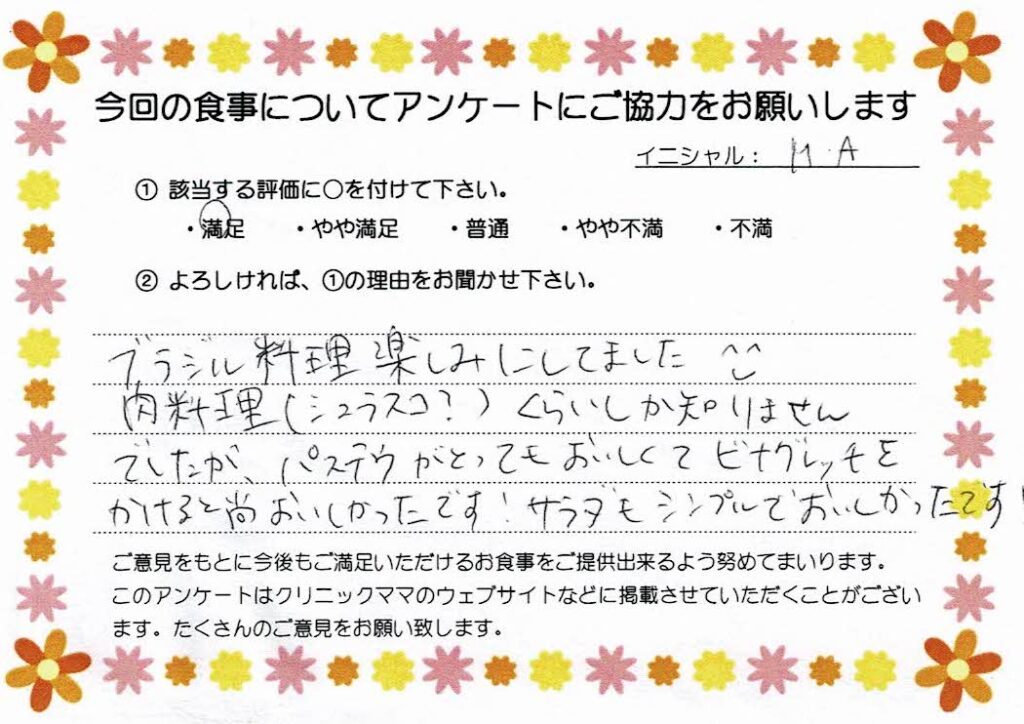 今回の食事についてアンケートにご協力をお願いします
イニシャル： M.A
① 該当する評価に〇を付けて下さい。
・満足 ・やや満足 ・普通 ・やや不満 ・不満
② よろしければ、①の理由をお聞かせ下さい。
ブラジル料理楽しみにしてました ^^
肉料理(シュラスコ?)くらいしか知りません
でしたが、パステウがとってもおいしくてビナグレッチを
かけると尚おいしかったです!サラダもシンプルでおいしかったです!
ご意見をもとに今後もご満足いただけるお食事をご提供出来るよう努めてまいります。
このアンケートはクリニックママのウェブサイトなどに掲載させていただくことがござい
ます。たくさんのご意見をお願い致します。